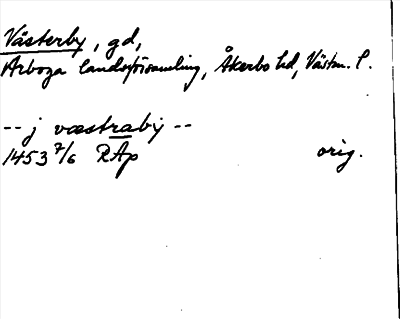 Västerby, gd,
Arboga landsförsamling, Åkerbo hd, Västm. l.
-- j væstraby --
1453 7/6 RAp orig.